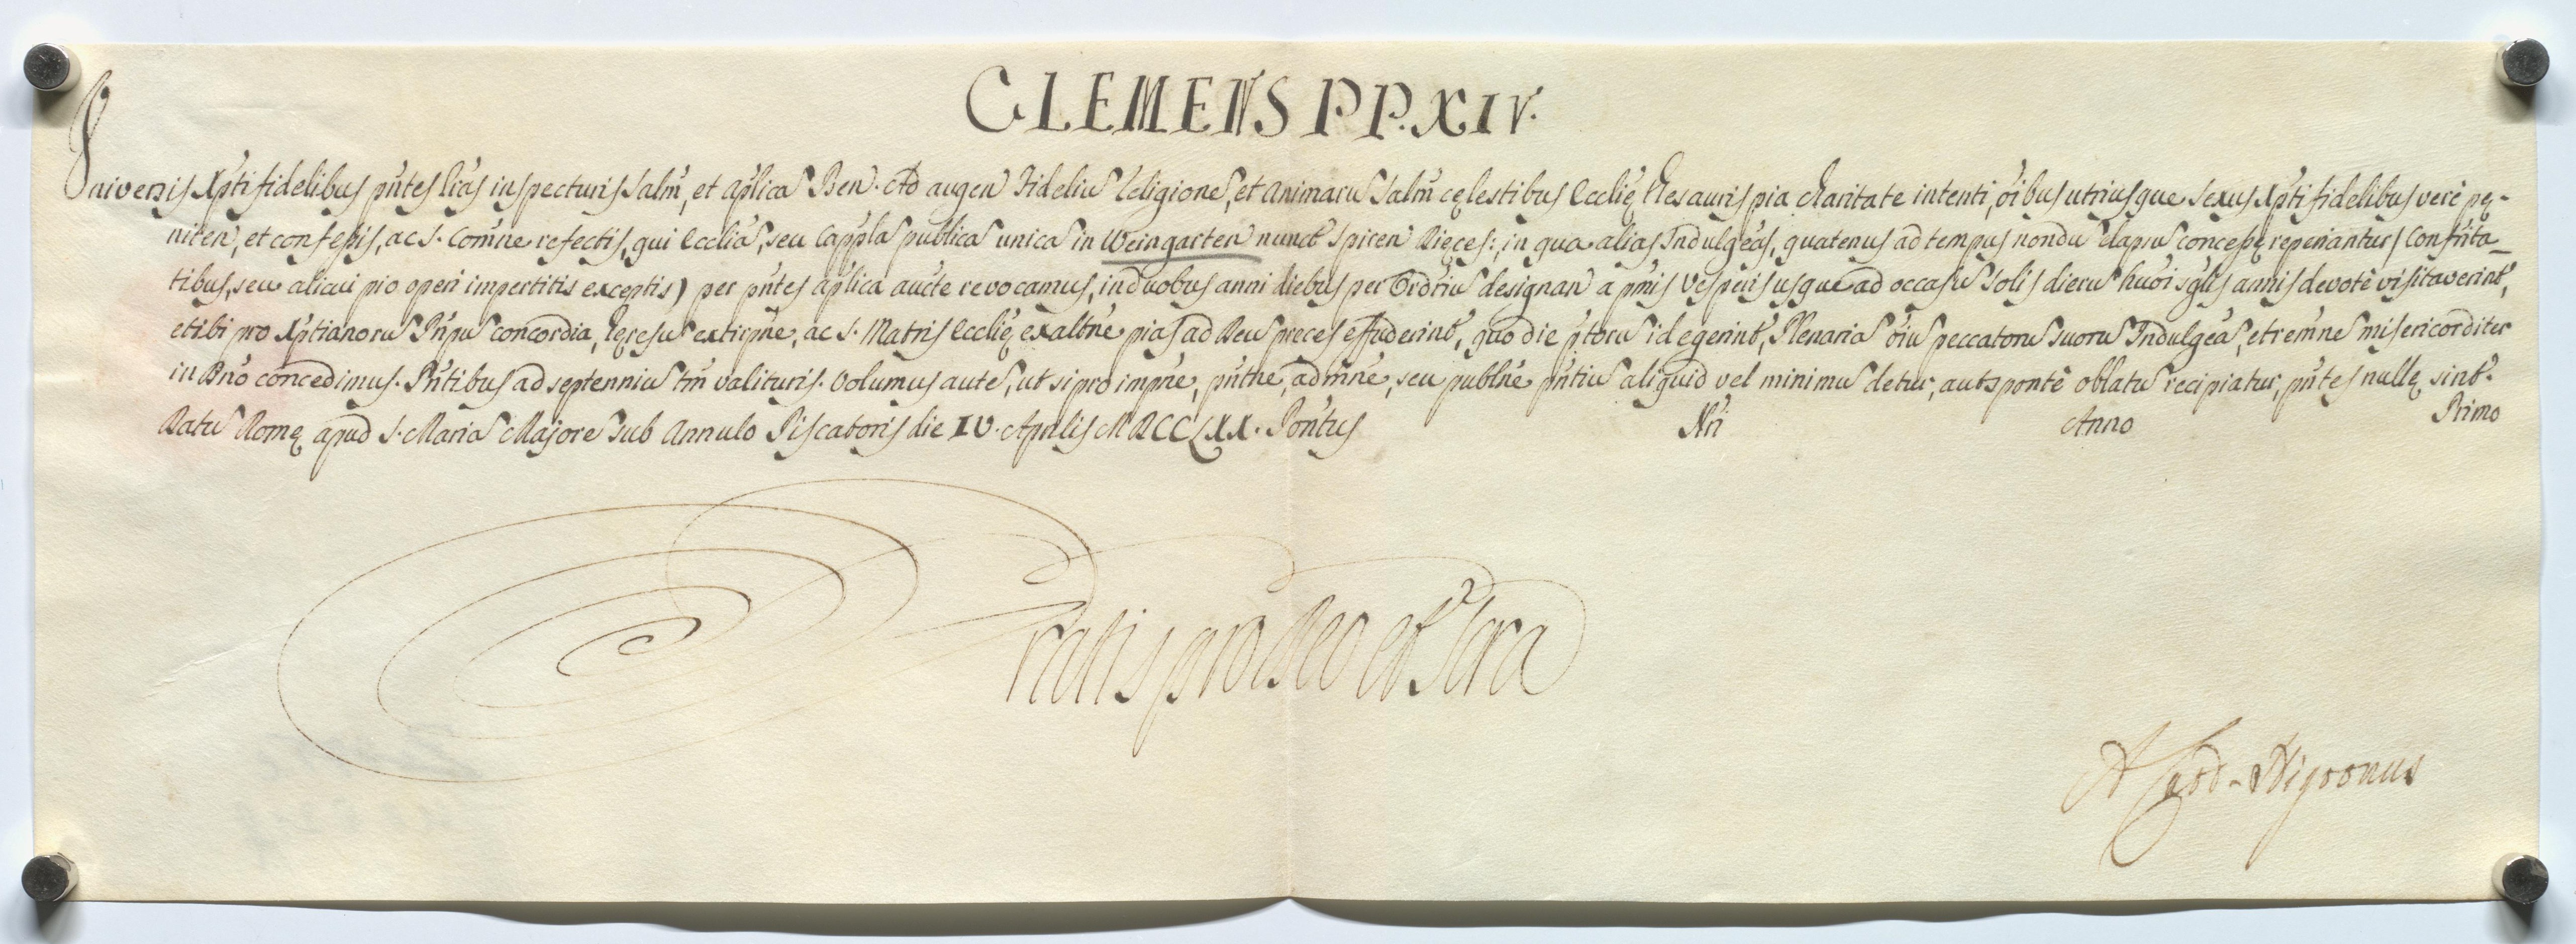 CLEMENS P.P. XIV.
Universis Xp̃tifidelibus pñtes lr̃as inspecturis Salm̃, et Ap̃licã Ben. Ad augen Fideliũ Religionẽ, et Animarũ Salm̃ cęlestibus Ecclię Thesauris pia charitate intenti, õibus utriusque sexus Xp̃tifidelibus verè pę-
niten, et confeßis, ac S. Com̃ne refectis, qui Eccliã, seu Cappl̃ã publicã unicã in Weingarten nunct Spiren Diẹces: in qua alias Indulgẽas, quatenus ad tempus nondũ elapsũ conceßę reperiantur, Confr̃ita_
tibus, seu alicui pio operi impertitis exceptis) per pñtes ap̃lica auc̃te revocamus, in duobus anni diebus per Ordr̃iũ designan a pm̃is Vesperis usque ad occasũ Solis dierũ huõi sg̃lis annis devotè visitaverint,
et ibi pro Xp̃tianorũ Pñpũ concordia, hęresũ extirpñe, ac S. Matris Ecclię exaltñe pias ad Deũ preces effuderint, quo die p̃torũ id egerint, Plenariã õiũ peccatorũ suorũ Indulgẽã, et rem̃nẽ misericorditer
in Dño concedimus. Pñtibus ad septenniũ tm̃ valituris. Volumus autẽ, ut si pro impñe, pñtne, adm̃ñe, seu publñe pñtiũ aliquid vel minimũ detur, aut sponte oblatũ recipiatur, pñtes nullę sint.
Datũ Romę apud S. Mariã Majorẽ sub Annulo Piscatoris die IV. Aprilis MDCCLXX. Pont̃us Nr̃i Anno Primo
Gratis pro Deo et Scra
A Card. Nigronus